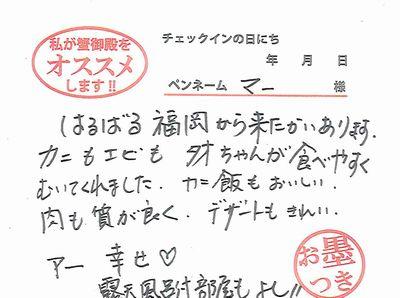 私が蟹御殿を
オススメ
します!!
チェックインの日にち
年 月 日
ペンネーム マー 様
はるばる福岡から来たかいあります.
カニもエビも タオちゃんが食べやすく
むいてくれました. カニ飯もおいしい.
肉も質が良く. デザートもきれい.
アー 幸せ♡
露天風呂付部屋もよし!!
お墨つき